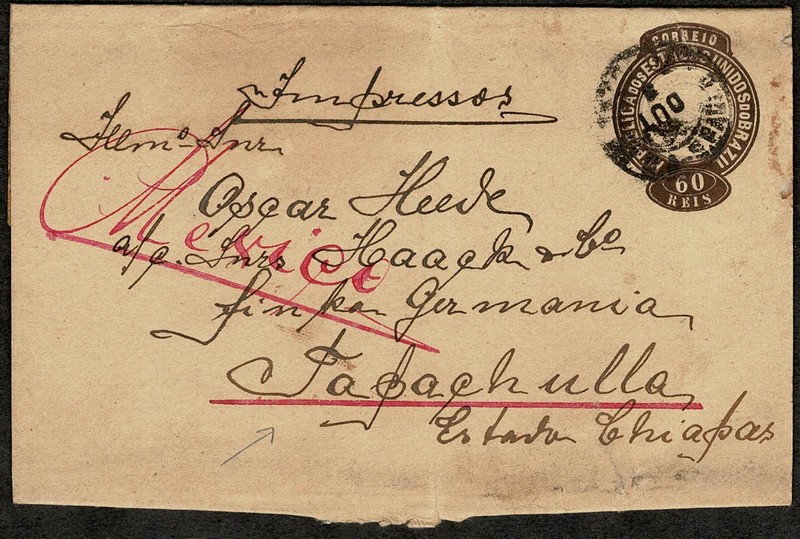 CORREIO
REPUBLICA DOS ESTADOS UNIDOS DO BRAZIL
60
REIS
"Impressos
Illmo. Snr.
Oscar Heede
a/c. Snrs Haack & Co
finka Germania
Tapachulla
Estado Chiapas
Mexico